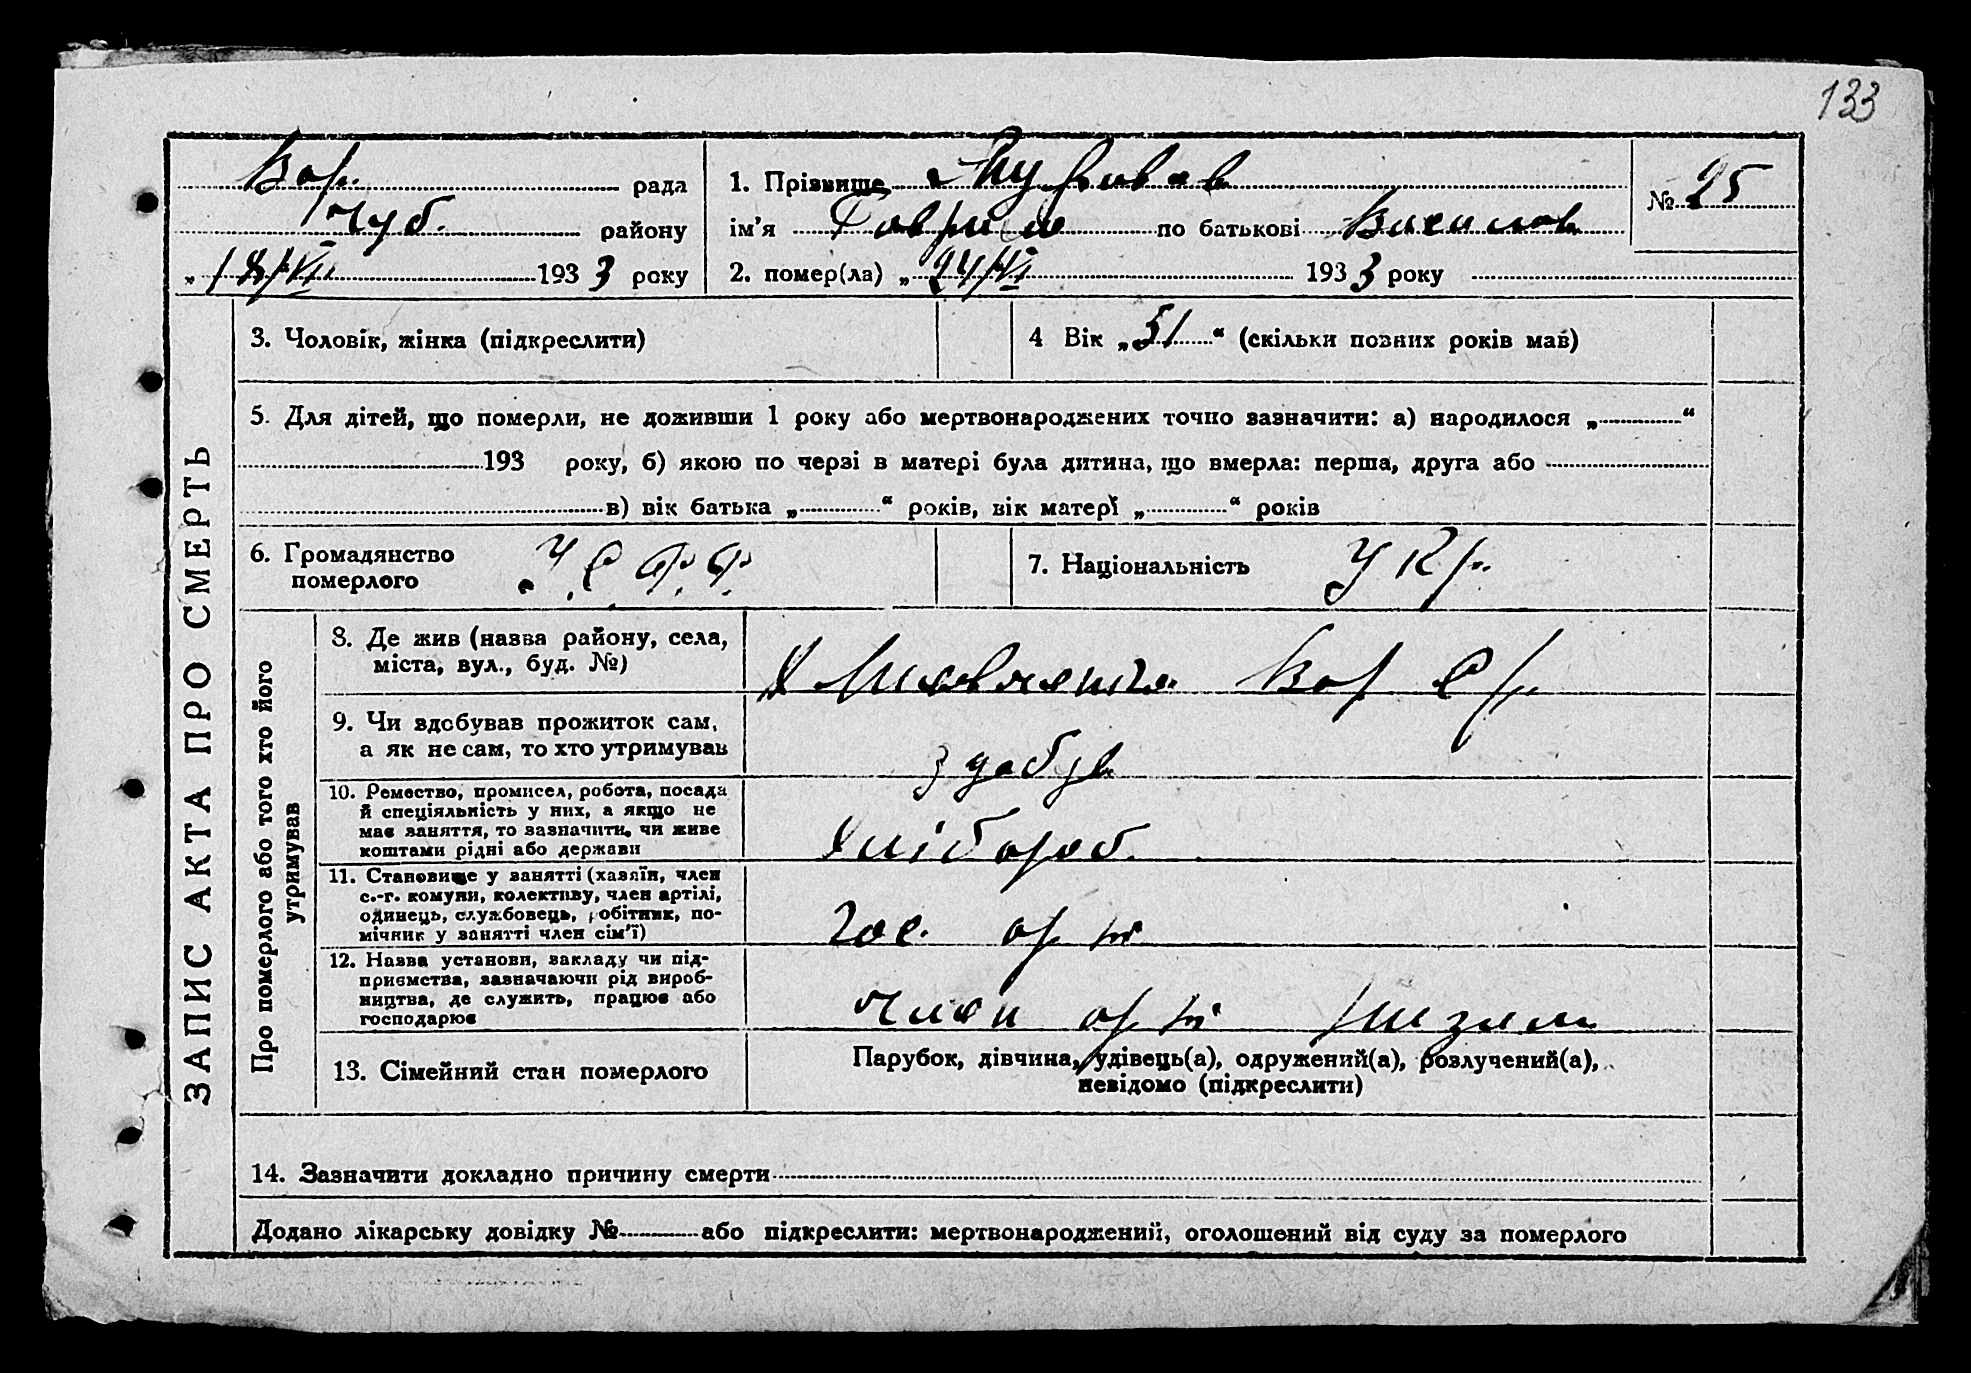 133
Вор. рада
Чуб. району
„18/VII 1933 року
1. Прізвище
ім'я Гаврило по батькові Василов
2. помер(ла) „24/VI 1933 року
№ 25
ЗАПИС АКТА ПРО СМЕРТЬ
3. Чоловік, жінка (підкреслити)
4 Вік „51“ (скільки повних років мав)
5. Для дітей, що померли, не доживши 1 року або мертвонароджених точно зазначити: а) народилося „ “
193 року, б) якою по черзі в матері була дитина, що вмерла: перша, друга або
в) вік батька „ “ років, вік матері „ “ років
6. Громадянство
померлого
У.С.Р.Р.
7. Національність Укр.
Про померлого або того хто його
утримував
8. Де жив (назва району, села,
міста, вул., буд. №)
Х Вор с/р.
9. Чи здобував прожиток сам,
а як не сам, то хто утримував
здобув
10. Ремество, промисел, робота, посада
й спеціяльність у них, а якщо не
має заняття, то зазначити, чи живе
коштами рідні або держави
Хлібороб.
11. Становище у занятті (хазяїн, член
с.-г. комуни, колективу, член артілі,
одинець, службовець, робітник, по-
мічник у занятті член сім'ї)
12. Назва установи, закладу чи під-
приємства, зазначаючи рід вироб-
ництва, де служить, працює або
господарює
член
13. Сімейний стан померлого
Парубок, дівчина, удівець(а), одружений(а), розлучений(а),
невідомо (підкреслити)
14. Зазначити докладно причину смерти
Додано лікарську довідку № або підкреслити: мертвонароджений, оголошений від суду за померлого